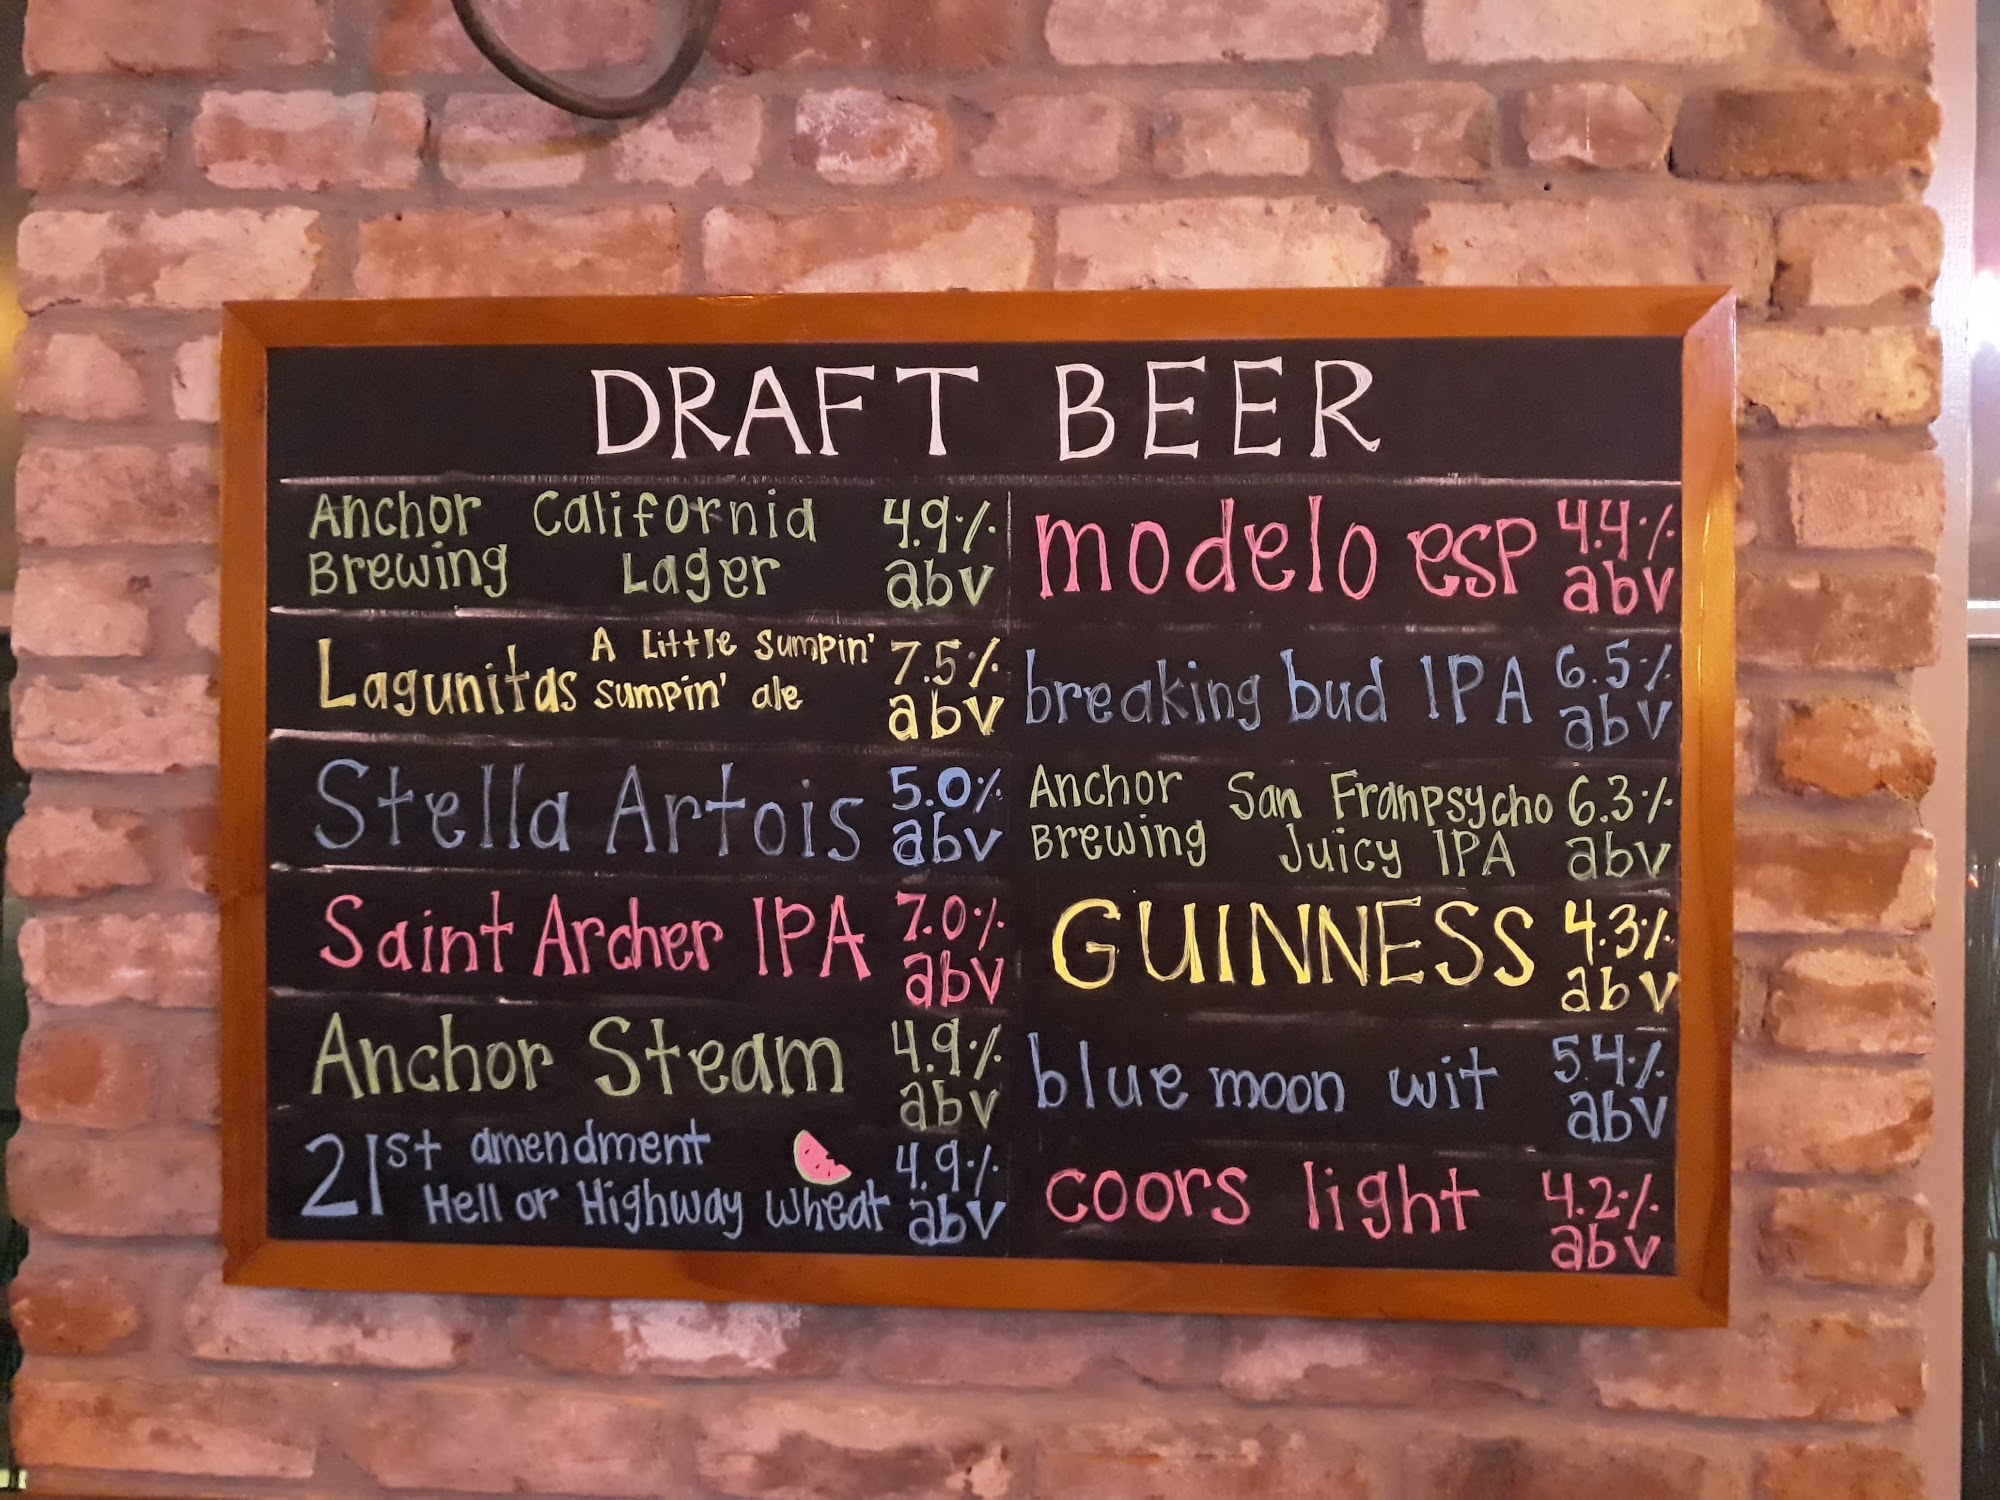 DRAFT BEER
Anchor California 4.9%
Brewing Lager abv
Lagunitas A Little Sumpin' 7.5%
Sumpin' ale abv
Stella Artois 5.0%
abv
Saint Archer IPA 7.0%
abv
Anchor Steam 4.9%
abv
21st amendment 4.9%
Hell or Highway wheat abv
modelo esp 4.4%
abv
breaking bud IPA 6.5%
abv
Anchor San Franpsycho 6.3%
Brewing Juicy IPA abv
GUINNESS 4.3%
abv
blue moon wit 5.4%
abv
coors light 4.2%
abv